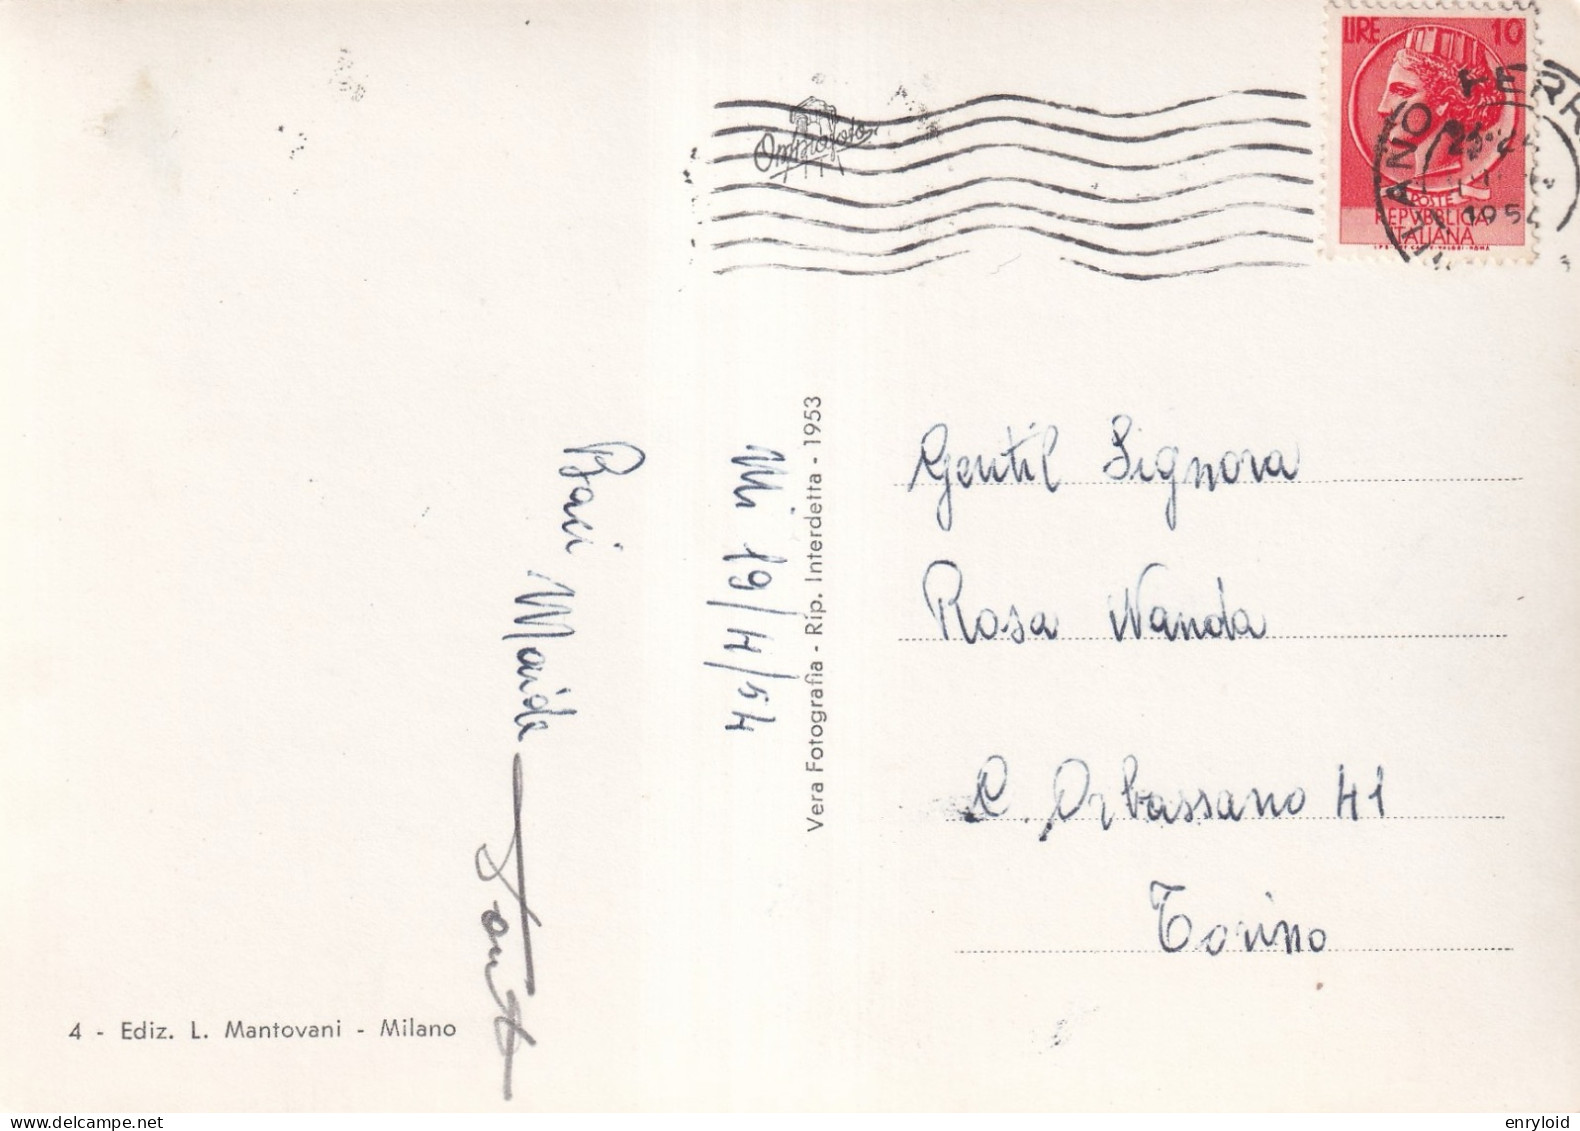 LIRE 10
POSTE
REPVBBLICA
ITALIANA
MILANO FERR
1954
Omniafoto
Mi 19/4/54
Baci Maida
Vera Fotografia - Rip. Interdetta - 1953
Gentil Signora
Rosa Wanda
C. Orbassano 41
Torino
4 - Ediz. L. Mantovani - Milano
delcampe.net
enryloid